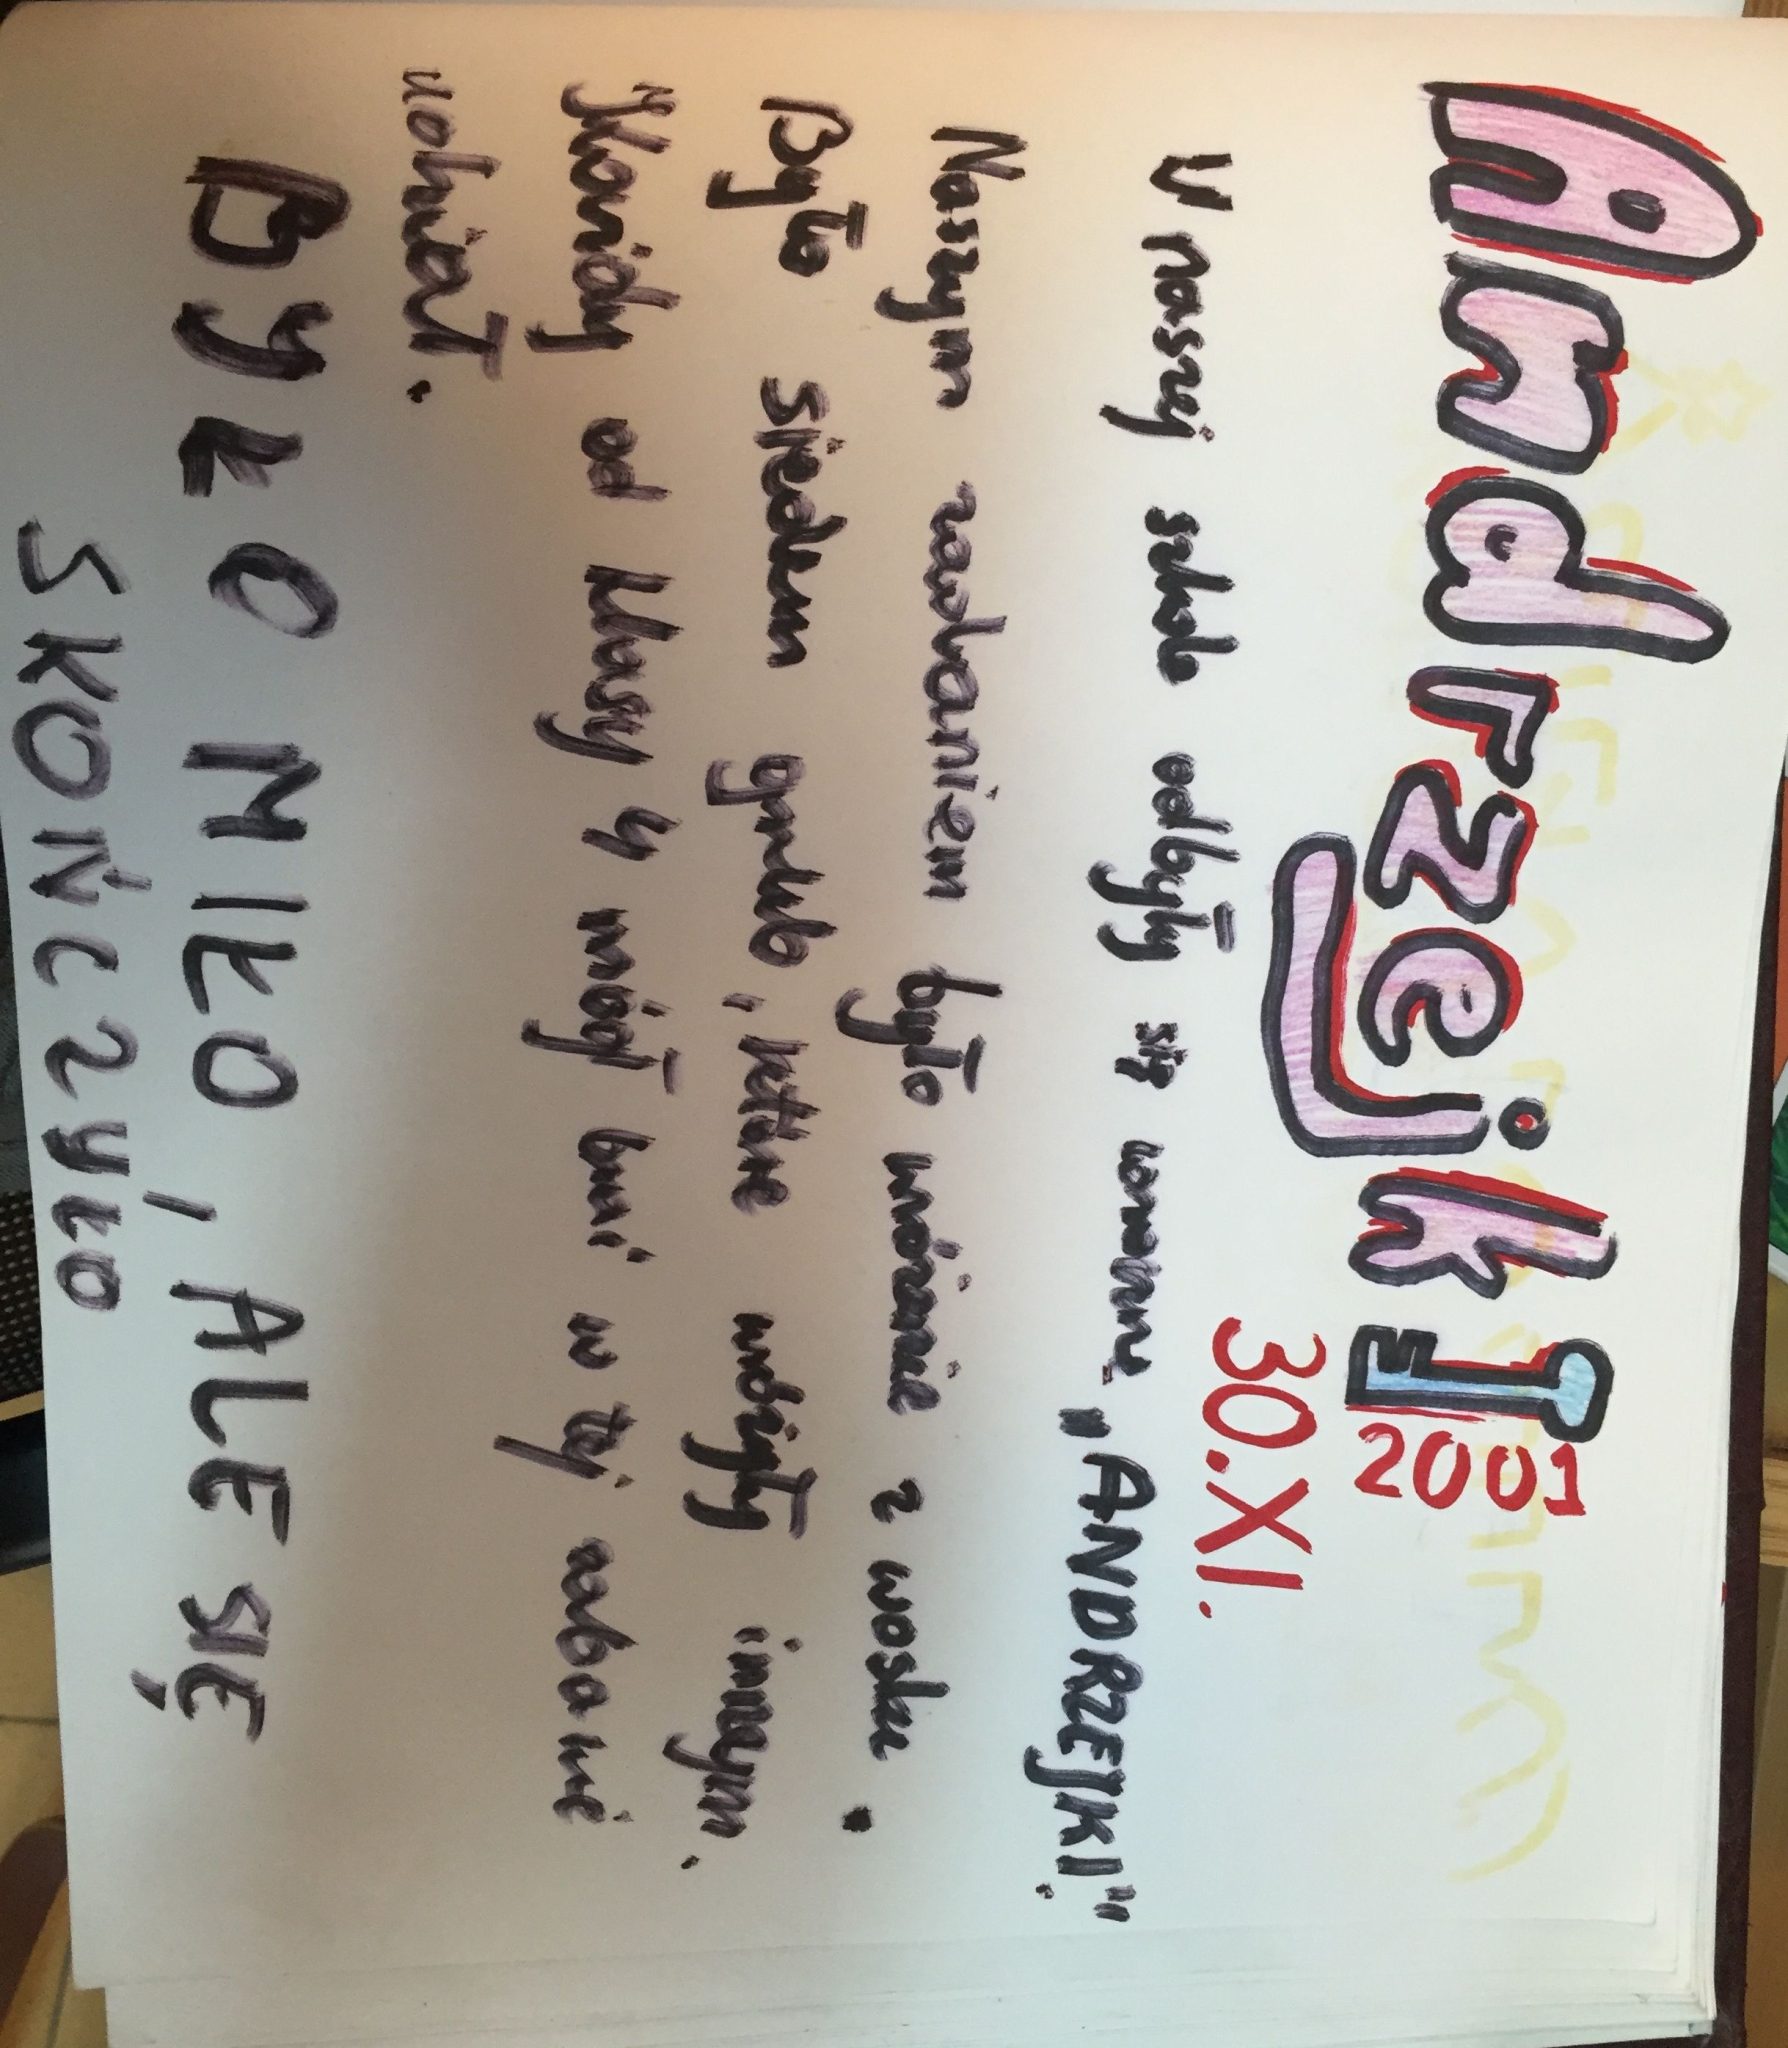 AndrzejkI
2001
30.XI.
U naszej szkole odbyły się "ANDRZEJKI".
Naszym zadaniem było wróżenie z wosku.
Było siedem grulo, które wróżyły innym.
Każdy od klasy 4 mógł buć w tej zabawie
uohiat.
BYŁO MIŁO, ALE SIĘ
SKOŃCZYŁO